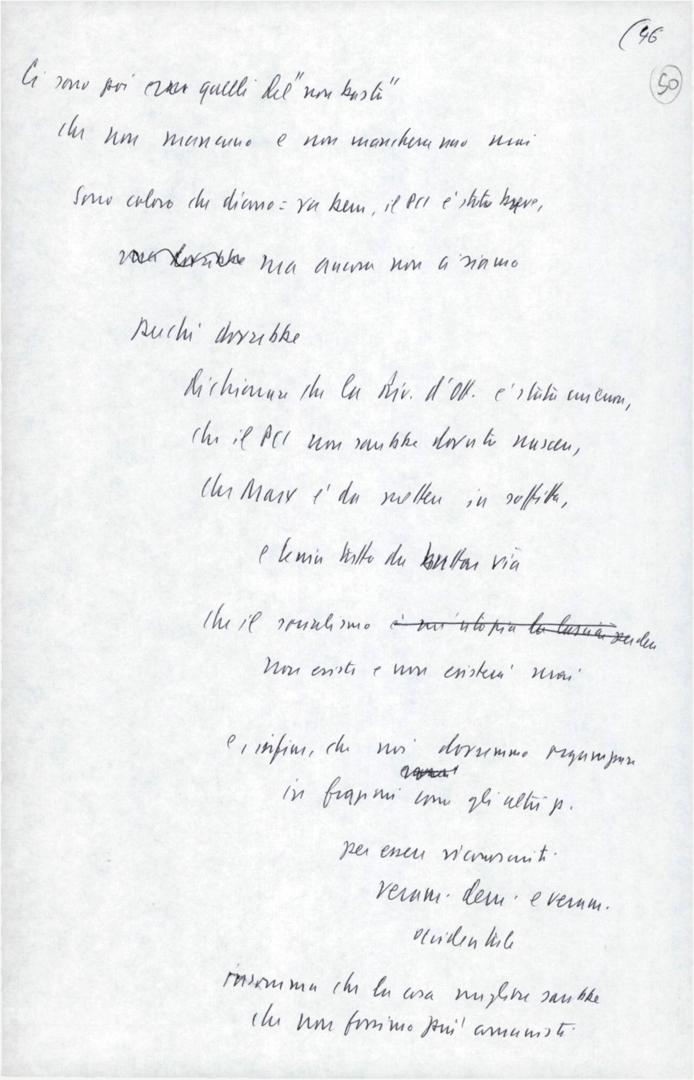 (46
50
Ci sono poi quelli del "non basta"
che non mancano e non mancheranno mai
Sono coloro che dicono = va bene, il PCI è stato bravo,
ma ancora non ci siamo
Perché dovrebbe
dichiarare che la Riv. d'Ott. è stata un errore,
che il PCI non sarebbe dovuto nascere,
che Marx è da mettere in soffitta,
e Lenin tutto da buttar via
che il socialismo è un'utopia da lasciar perdere
non esiste e non esisterà mai
e, infine, che noi dovremmo organizzarci
in frazioni come gli altri p.
per essere riconosciuti
veram. dem. e veram.
occidentale
insomma che la cosa migliore sarebbe
che non fossimo più comunisti